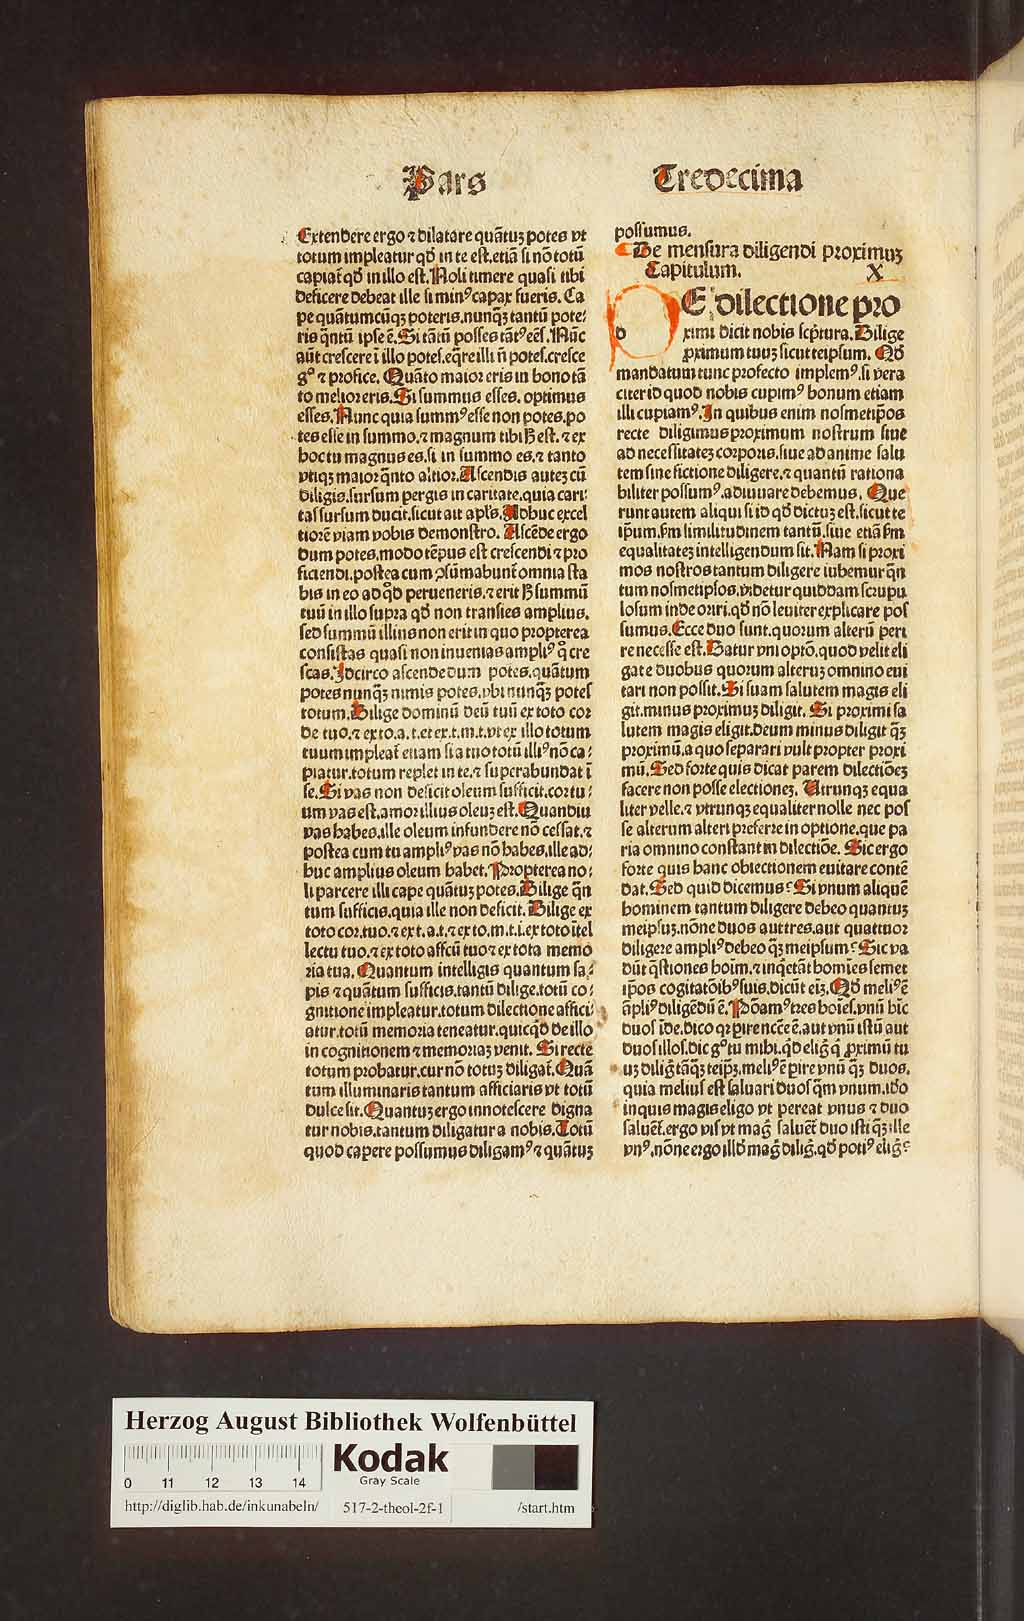 Pars Tredecima
Extendere ergo ⁊ dilatare quātuꝫ potes vt
totum impleatur qď in te est. etiā si nō totū
capiat̄ qď in illo est. Noli timere quasi tibi
deficere debeat ille si minꝰ capax fueris. Ca
pe quātumcūqꝫ poteris. nunqꝫ̄ tantū pote⸗
ris q̄ntū ipse ē. Si tātū posses tātꝰ eēs. Nūc
aūt crescere ī illo potes. eq̄re illi n̄ potes. cresce
gͦ ⁊ profice. Quāto maior eris in bono tā
to melior eris. Si summus esses. optimus
esses. Nunc quia summꝰ esse non potes. po
tes esse in summo. ⁊ magnum tibi ẜ est. ⁊ ex
hoc tu magnus es. si in summo es. ⁊ tanto
vtiqꝫ maior q̄nto altior. Ascendis auteꝫ cū
diligis. sursum pergis in caritate. quia cari⸗
tas sursum ducit. sicut ait apl̄s. Adhuc excel
tiorē viam vobis demonstro. Ascēde ergo
dum potes. modo tēpus est crescendi ⁊ pro
ficiendi. postea cum ꝯsūmabunt̄ omnia sta
bis in eo ad qͦd perueneris. ⁊ erit ẜ summū
tuū in illo supra qď non transies amplius.
sed summū illius non erit in quo propterea
consistas quasi non inuenias ampliꝰ qͦ cre
scas. Idcirco ascende dum potes. quātum
potes nunqꝫ̄ nimis potes. vbi nunqꝫ̄ potes
totum. Dilige dominū deū tuū ex toto cor
de tuo. ⁊ ex to. a. t. et ex. t. m. t. vt ex illo totum
tuum impleat̄ etiam si a tuo totū illiꝰ nō ca⸗
piatur. totum replet in te. ⁊ superabundat ī
se. Si vas non deficit oleum sufficit. cor tu⸗
um vas est. amor illius oleuꝫ est. Quandiu
vas habes. ille oleum infundere nō cessat. ⁊
postea cum tu ampliꝰ vas nō habes. ille ad⸗
huc amplius oleum habet. Propterea no⸗
li parcere illi cape quātuꝫ potes. Dilige q̄n
tum sufficis. quia ille non deficit. Dilige ex
toto cor. tuo. ⁊ ex t. a. t. ⁊ ex to. m. t. i. ex toto ītel
lectu tuo. ⁊ ex toto affcū tuo ⁊ ex tota memo
ria tua. Quantum intelligis quantum sa⸗
pis ⁊ quātum sufficis. tantū dilige. totū co⸗
gnitione impleatur. totum dilectione affici⸗
atur. totū memoria teneatur. quicqͦd de illo
in cognitionem ⁊ memoriaꝫ venit. Si recte
totum probatur. cur nō totuꝫ diligat̄. Quā
tum illuminaris tantum afficiaris vt totū
dulce sit. Quantuꝫ ergo innotescere digna
tur nobis. tantum diligatur a nobis. Totū
quod capere possumus diligamꝰ ⁊ quātuꝫ
possumus.
De mensura diligendi proximuꝫ
Capitulum. X
DE dilectione pro
ximi dicit nobis scp̄tura. Dilige
ꝓximum tuuꝫ sicut teipsum. Qď
mandatum tunc profecto implemꝰ. si vera
citer id quod nobis cupimꝰ bonum etiam
illi cupiamꝰ. In quibus enim nosmetip̄os
recte diligimus proximum nostrum siue
ad necessitateꝫ corporis. siue ad anime salu
tem sine fictione diligere. ⁊ quantū rationa
biliter possumꝰ. adiuuare debemus. Que
runt autem aliqui si id qď dictuꝫ est. sicut te
ip̄um. ẜm similitudinem tantū. siue etiā ẜm
equalitateꝫ intelligendum sit. Nam si proxi
mos nostros tantum diligere iubemur q̄n
tum nosmetipsos. videtur quiddam scrupu
losum inde oriri. qď nō leuiter explicare pos
sumus. Ecce duo sunt. quorum alterū peri
re necesse est. Datur vni optō. quod velit eli
gat e duobus quorum alteruꝫ omnino eui
tari non possit. Si suam salutem magis eli
git. minus proximuꝫ diligit. Si proximi sa
lutem magis eligit. deum minus diligit qꝫ̄
proximū. a quo separari vult propter proxi
mū. Sed forte quis dicat parem dilectiōeꝫ
facere non posse electioneꝫ. Utrunqꝫ equa
liter velle. ⁊ vtrunqꝫ equaliter nolle nec pos
se alterum alteri preferre in optione. que pa
ria omnino constant in dilectiōe. Sic ergo
forte quis hanc obiectionem euitare contē
dat. Sed quid dicemus? Si vnum aliquē
hominem tantum diligere debeo quantuꝫ
meipsuꝫ. nōne duos aut tres. aut quattuor
diligere ampliꝰ debeo qꝫ̄ meipsum? Sic va
dūt q̄stiones hoīm. ⁊ inq̇etāt homīes semet
ip̄os cogitatōibꝰ suis. dicūt eīꝫ. Qď meliꝰ ē
āpliꝰ diligēdū ē. Pōamꝰ tres hoīes. vnū hīc
duos īde. dico qꝛ pirencēe ē. aut vnū istū aut
duos illos. dic gͦ tu mihi. qͥd elig̃ q̇ ꝓximū tu
uꝫ dilig̃ tāqꝫ̄ teip̄ꝫ. meliꝰ ē pire vnū qꝫ̄ duos.
quia melius est saluari duos q̄m vnum. id́o
inquis magis eligo vt pereat vnus ⁊ duo
saluēt̄. ergo vis vt mag̃ saluēt̄ duo isti qꝫ̄ ille
vnꝰ. nōne ergo illď mag̃ dilig̃. qď potiꝰ elig̃?
Herzog August Bibliothek Wolfenbüttel
0 11 12 13 14
Kodak
Gray Scale
http://diglib.hab.de/inkunabeln/ 517-2-theol-2f-1 /start.htm